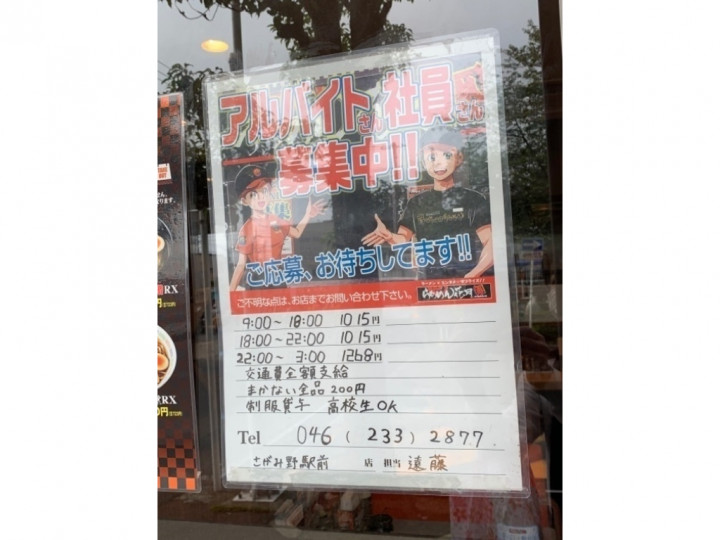 アルバイトさん社員さん
募集中!!
ご応募、お待ちしてます!!
ご不明な点は、お店までお問い合わせ下さい。
9:00〜18:00 1015円
18:00〜22:00 1015円
22:00〜3:00 1268円
交通費全額支給
まかない全品200円
制服貸与 高校生OK
Tel 046(233)2877
さがみ野駅前 店 担当 遠藤
RX
RX